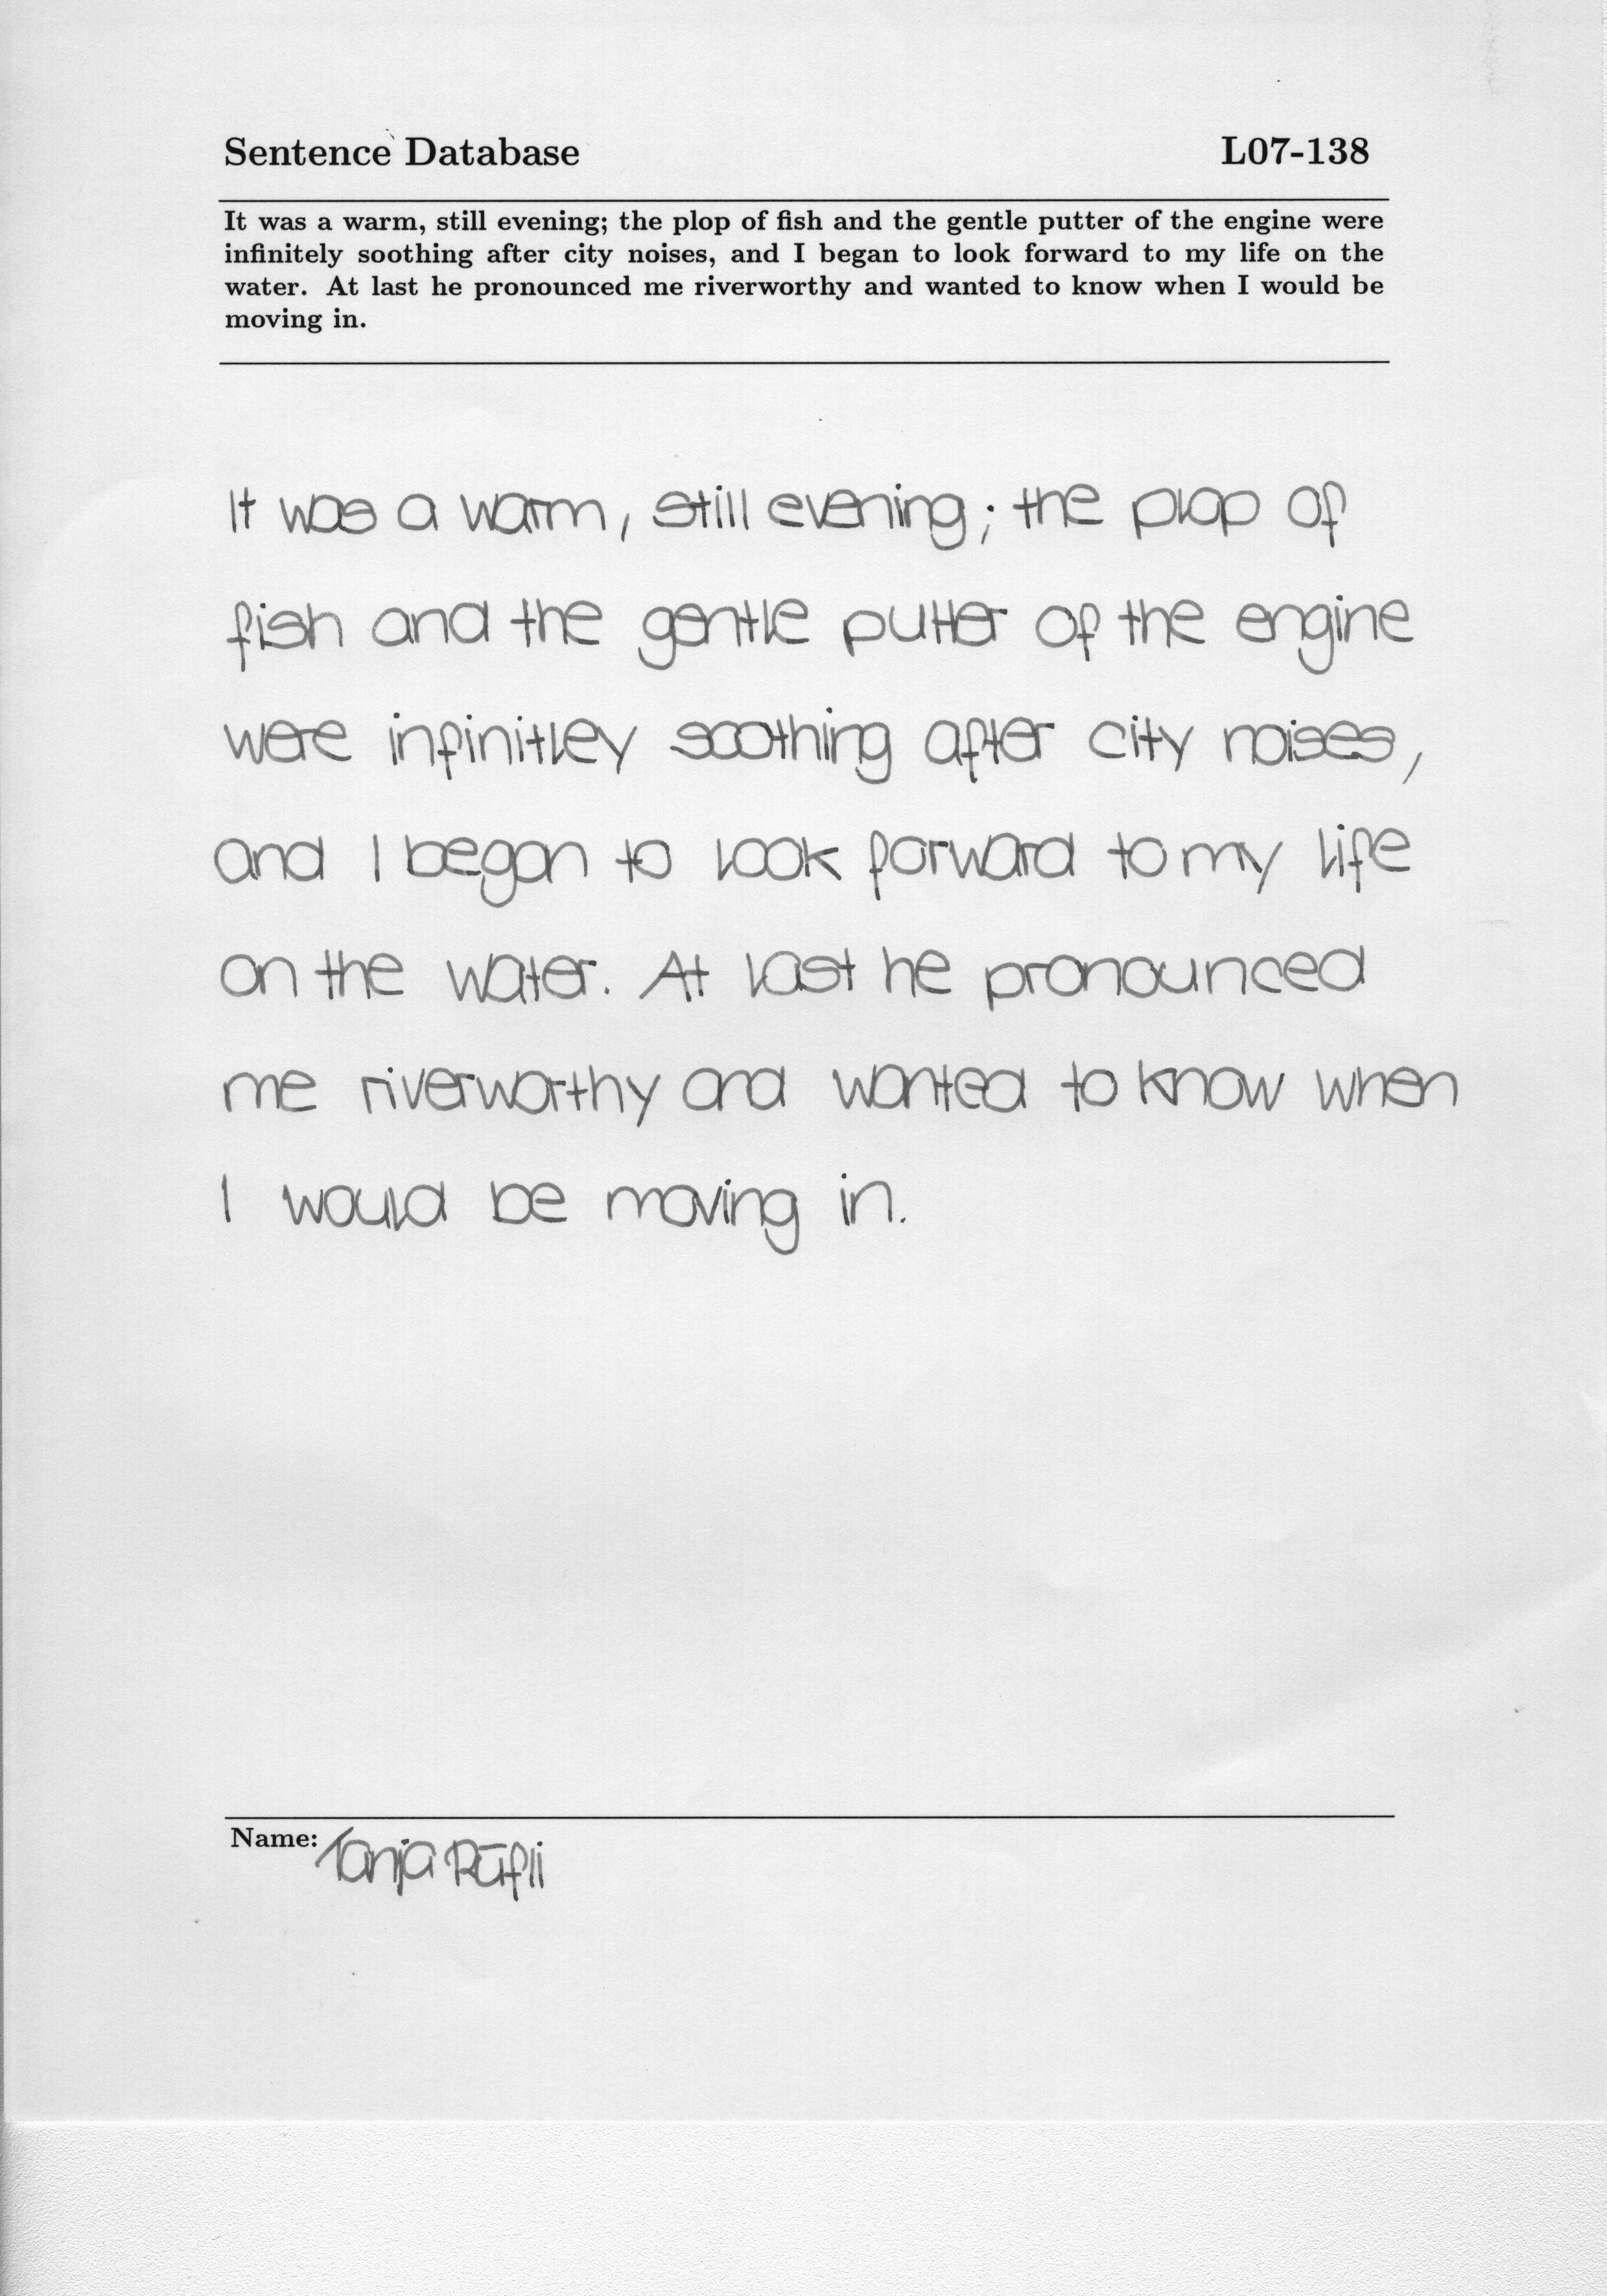 Sentence Database L07-138
It was a warm, still evening; the plop of fish and the gentle putter of the engine were
infinitely soothing after city noises, and I began to look forward to my life on the
water. At last he pronounced me riverworthy and wanted to know when I would be
moving in.
It was a warm, still evening; the plop of
fish and the gentle putter of the engine
were infinitley soothing after city noises,
and I began to look forward to my life
on the water. At last he pronounced
me riverworthy and wanted to know when
I would be moving in.
Name: Tanja Rüfli